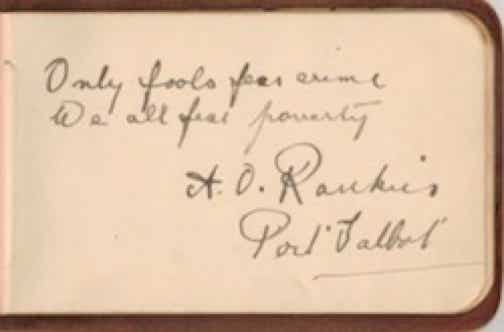 Only fools fear crime
We all fear poverty
A. O. Rankin
Port Talbot